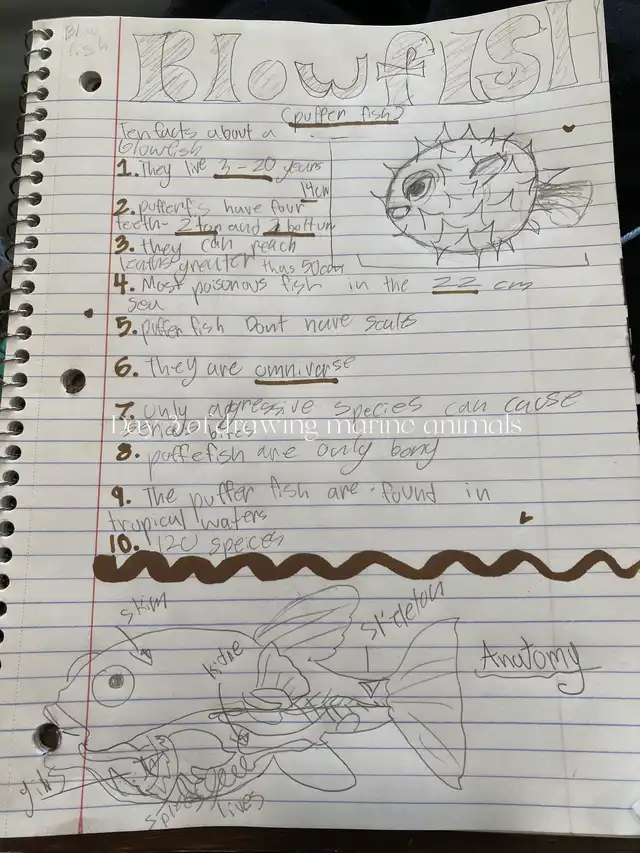 Blow
fish
BlowfISH
(puffer fish)
Ten facts about a
blowfish
1. They live 3-20 years
14cm
2. pufferfis have four
teeth- 2 top and 2 bottum
3. they can reach
greater than 50cm
4. Most poisonous fish in the 22 cm
sea
5. puffer fish Dont have scals
6. They are omniverse
7. only aggressive species can cause
bites
Day 2 of drawing marine animals
8. puffefish are only bony
9. The puffer fish are found in
tropical waters
10. 120 speces
skin
Skleton
kidne
Anatomy
gills
lives